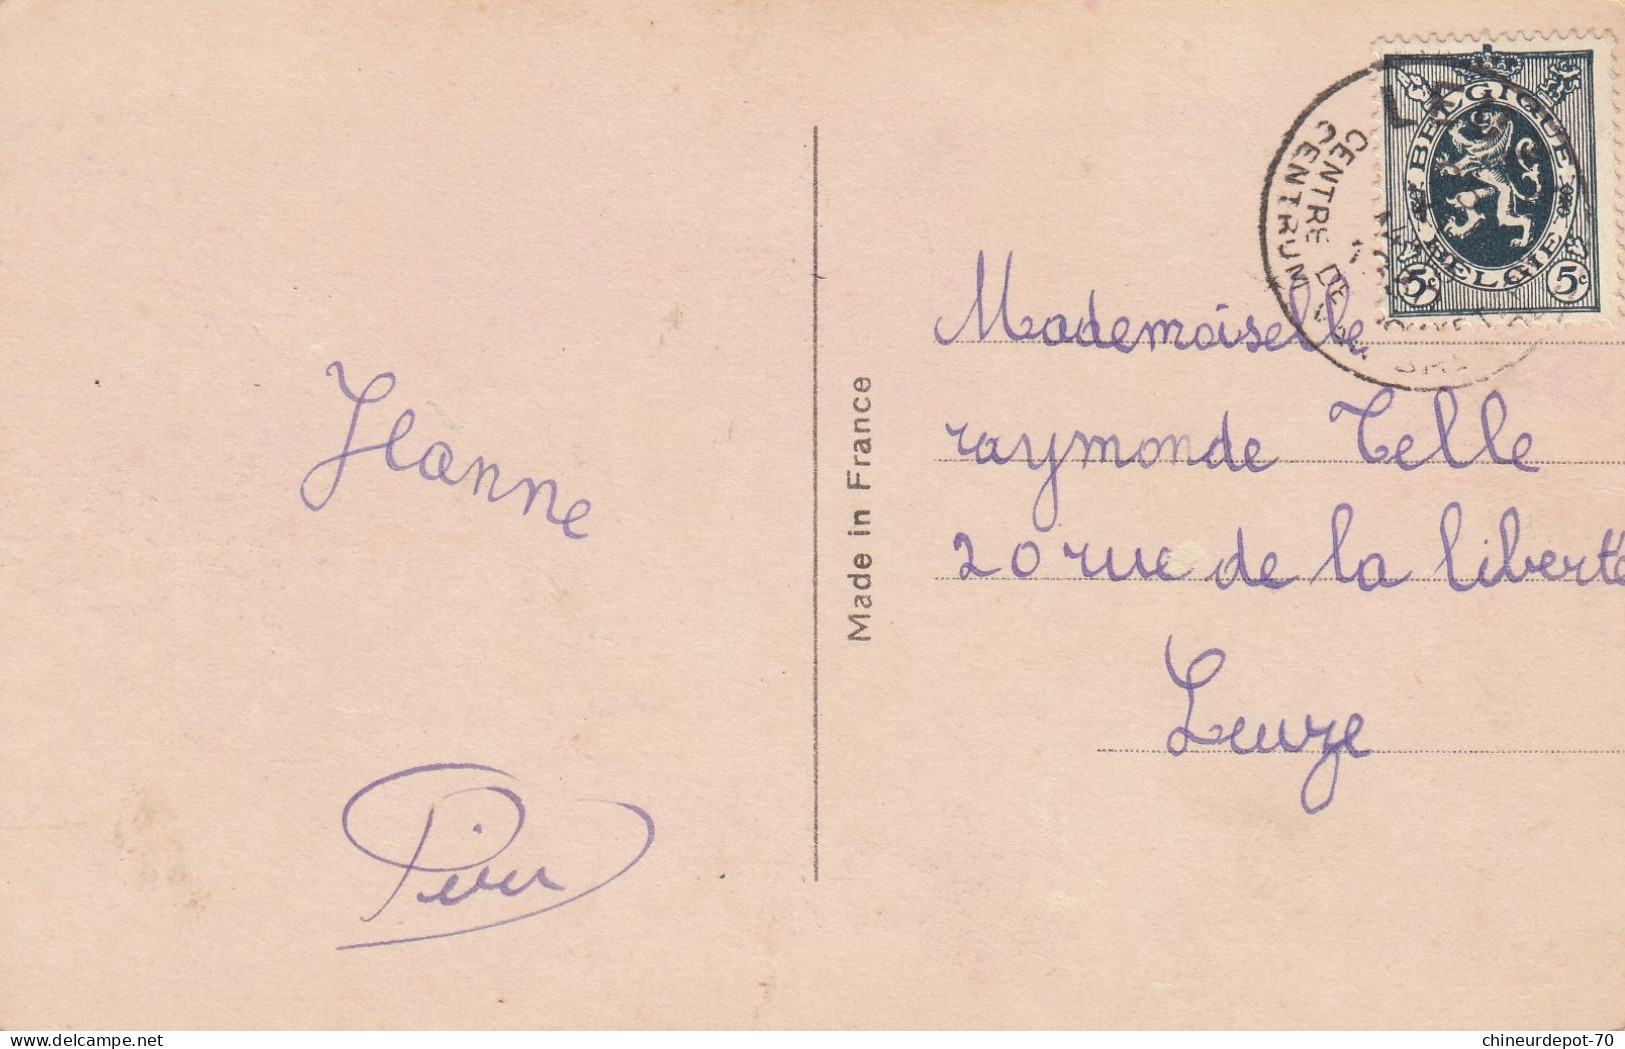 BELGIQUE
BELGIE
5c 5c
CENTRE DE
CENTRUM
Jeanne
Made in France
Mademoiselle
raymonde Telle
20 rue de la liberté
Leuze
delcampe.net
chineurdepot-70